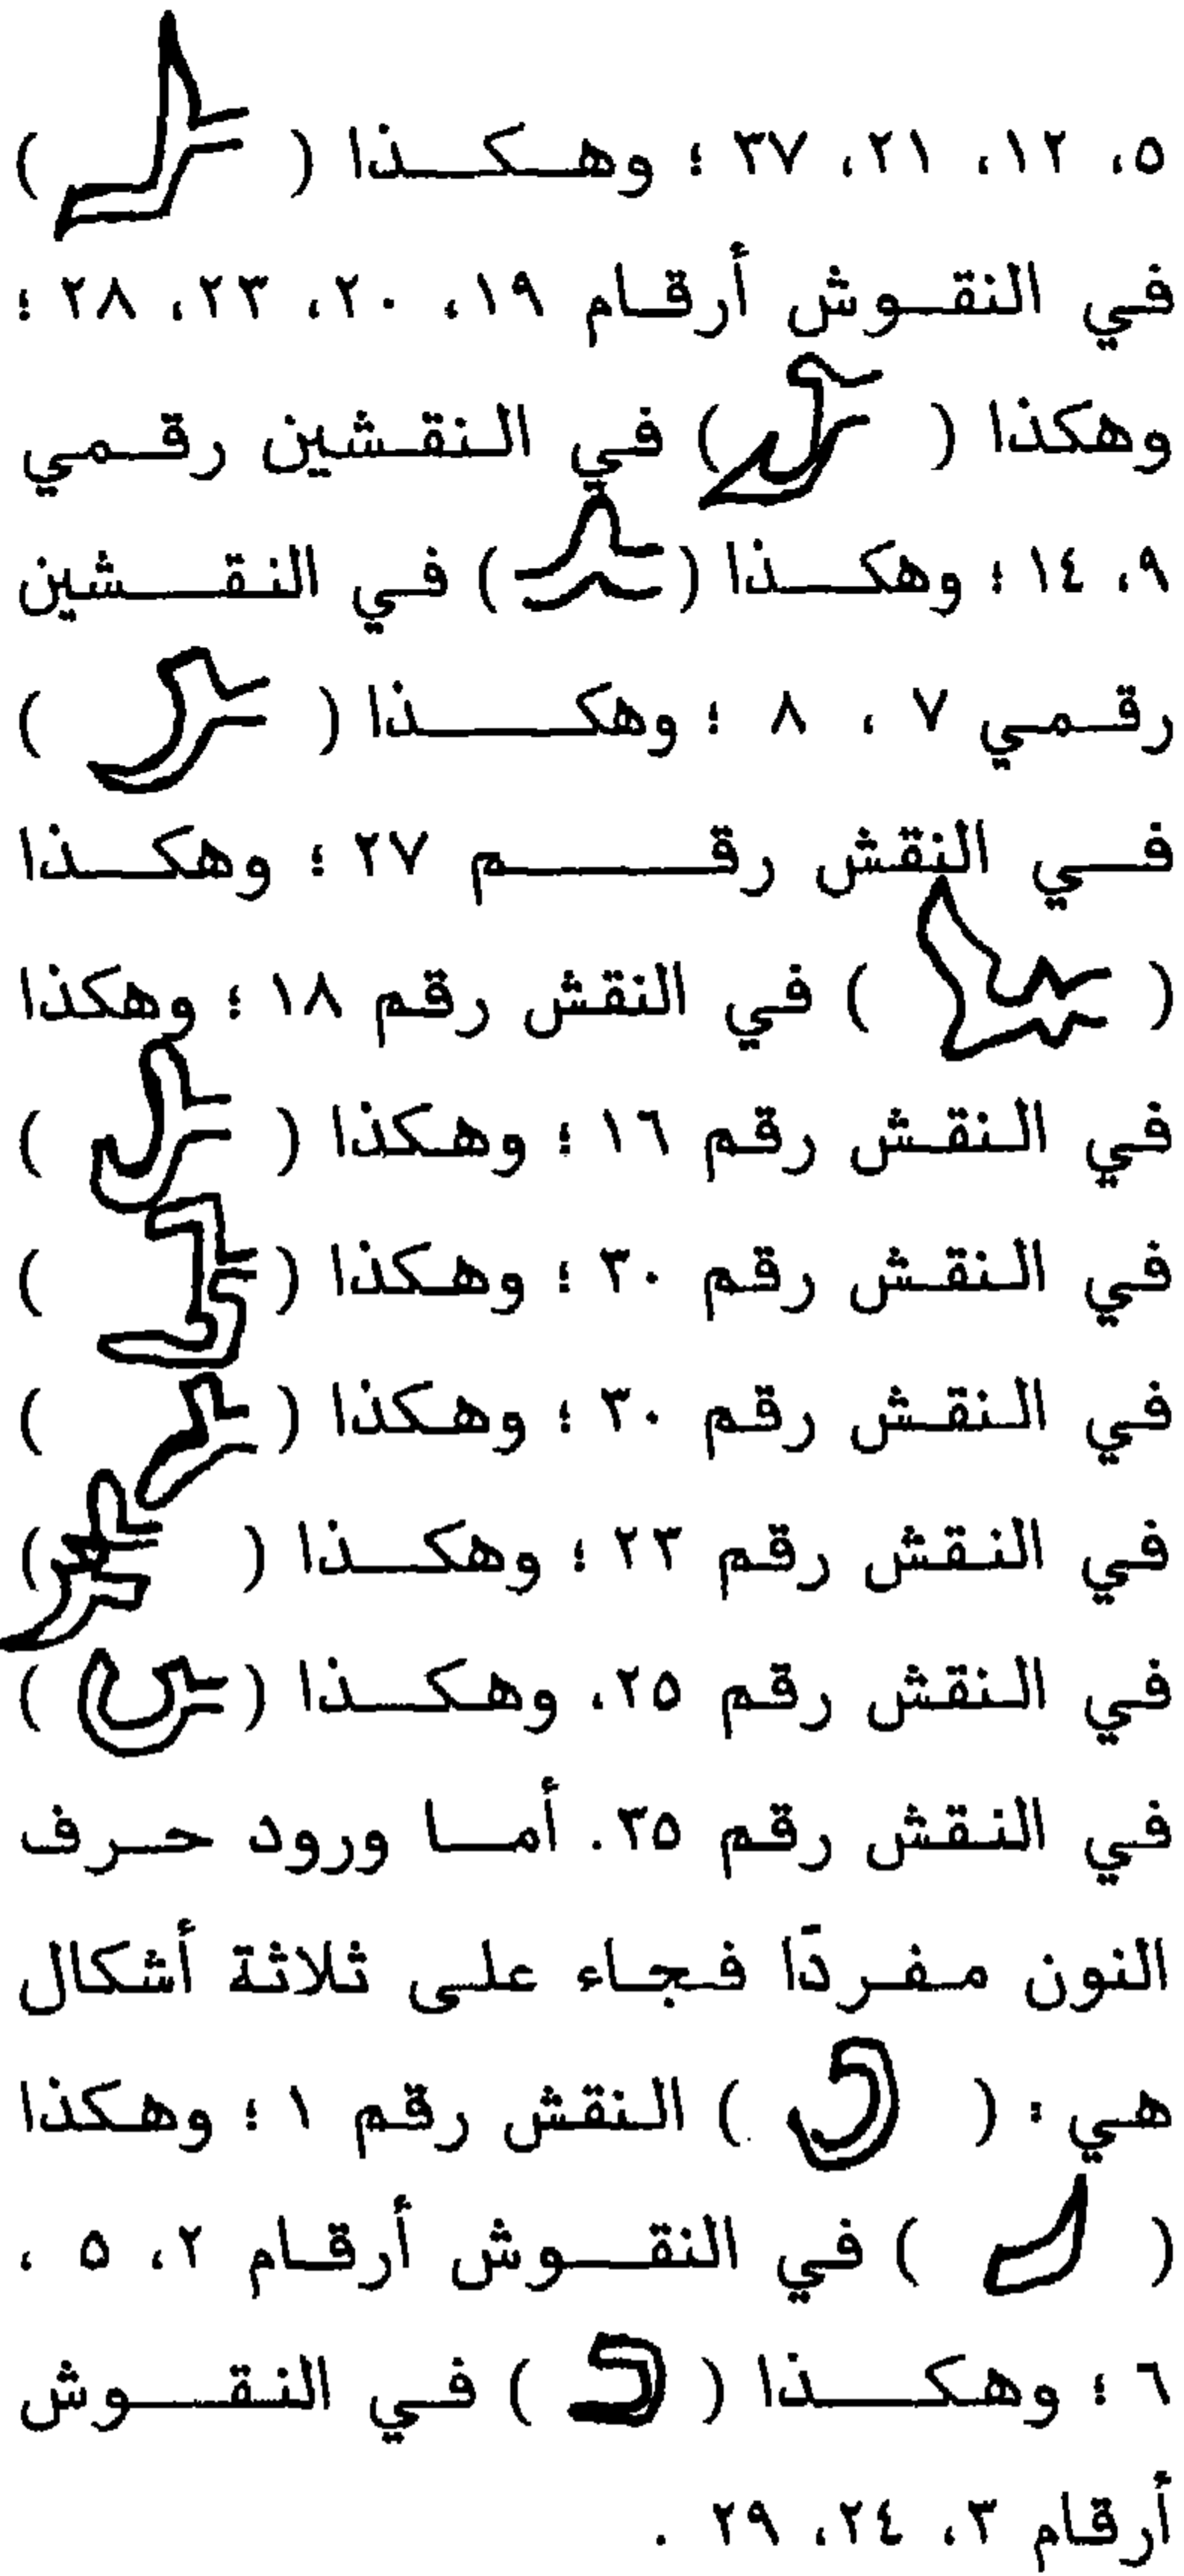 ٥، ١٢، ٢١، ٣٧ ؛ وهكذا ( )
في النقوش أرقام ١٩، ٢٠، ٢٣، ٢٨ ؛
وهكذا ( ) في النقشين رقمي
٩، ١٤ ؛ وهكذا ( ) في النقشين
رقمي ٧ ، ٨ ؛ وهكذا ( )
في النقش رقم ٢٧ ؛ وهكذا
( ) في النقش رقم ١٨ ؛ وهكذا
في النقش رقم ١٦ ؛ وهكذا ( )
في النقش رقم ٣٠ ؛ وهكذا ( )
في النقش رقم ٣٠ ؛ وهكذا ( )
في النقش رقم ٢٣ ؛ وهكذا ( )
في النقش رقم ٢٥، وهكذا ( )
في النقش رقم ٣٥. أما ورود حرف
النون مفردًا فجاء على ثلاثة أشكال
هي : ( ) النقش رقم ١ ؛ وهكذا
( ) في النقوش أرقام ٢، ٥ ،
٦ ؛ وهكذا ( ) في النقوش
أرقام ٣، ٢٤، ٢٩ .